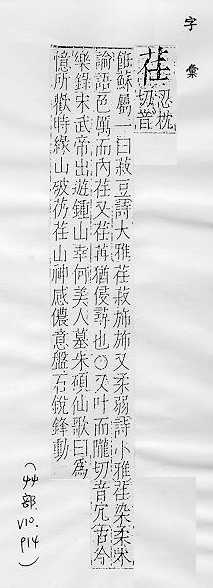 字彙
荏 忍枕
切音
飪蘇屬一曰菽豆詩大雅荏菽斾斾又柔弱詩小雅荏染柔木
論語色厲而內荏又荏苒猶侵尋也○又叶而隴切音宂古今
樂錄宋武帝出遊鍾山幸何美人墓朱碩仙歌曰爲
憶所歡時緣山破芿荏山神感儂意盤石銳鋒動
(艸部
V10.
P14)